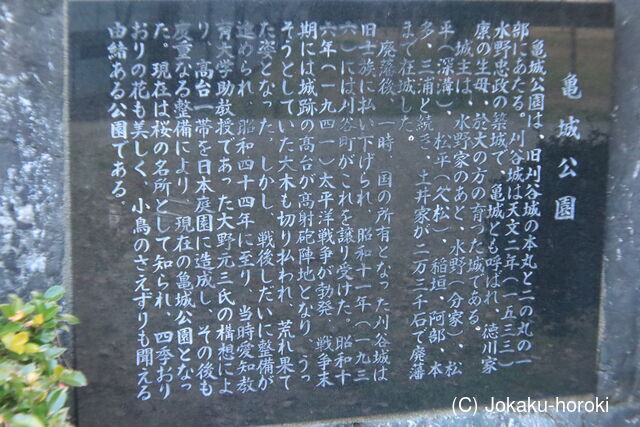 亀城公園
亀城公園は、旧刈谷城の本丸と二の丸の一
部にあたる。刈谷城は天文二年(一五三三)
水野忠政の築城で、亀城とも呼ばれ、徳川家
康の生母、於大の方の育った城である。
城主は、水野家のあと、水野(分家)、松
平(深溝)、松平(久松)、稲垣、阿部、本
多、三浦と続き、土井家が二万三千石で廃藩
まで在城した。
廃藩後、一時、国の所有となった刈谷城は
旧士族に払い下げられ、昭和十一年(一九三
六)には刈谷町がこれを譲り受けた。昭和十
六年(一九四一)太平洋戦争が勃発、戦争末
期には城跡の高台が高射砲陣地となり、うっ
そうとしていた大木も切り払われ、荒れ果て
た姿となった。しかし、戦後しだいに整備が
進められ、昭和四十四年に至り、当時愛知教
育大学助教授であった大野元三氏の構想によ
り、高台一帯を日本庭園に造成し、その後も
度重なる整備により、現在の亀城公園となっ
た。現在は桜の名所として知られ、四季おり
おりの花も美しく、小鳥のさえずりも聞える
由緒ある公園である。
(C) Jokaku-horoki